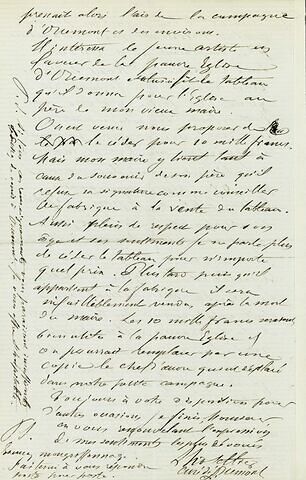 prenait alors l'air de la campagne
d'Orcemont et des environs.
Il intéressa le jeune artiste en
faveur de la pauvre Eglise
d'Orcemont et lui fit le tableau
qu'il donna pour l'Eglise au
père de mon vieux maire.
On est venu nous proposer de
le céder pour 10 mille francs.
Mais mon maire y tient tant à
cause du souvenir de son père qu'il
refusa sa signature comme conseiller
de fabrique à la vente du tableau.
Aussi plein de respect pour son
âge et ses sentiments je ne parle plus
de céder le tableau pour n'importe
quel prix. Plus tard puis qu'il
appartient à la fabrique il sera
infailliblement vendu, après la mort
du maire. Les 10 mille francs seraient
bien utiles à la pauvre Eglise et
on pourrait remplacer par une
copie le chef d'œuvre qui est déplacé
dans notre petite campagne.
Toujours à votre disposition pour
d'autres occasions, je finis
en vous renouvelant l'expression
de mes sentiments les plus dévoués
Curé d'Orcemont
J'ai tenu à vous répondre
poste pour poste.